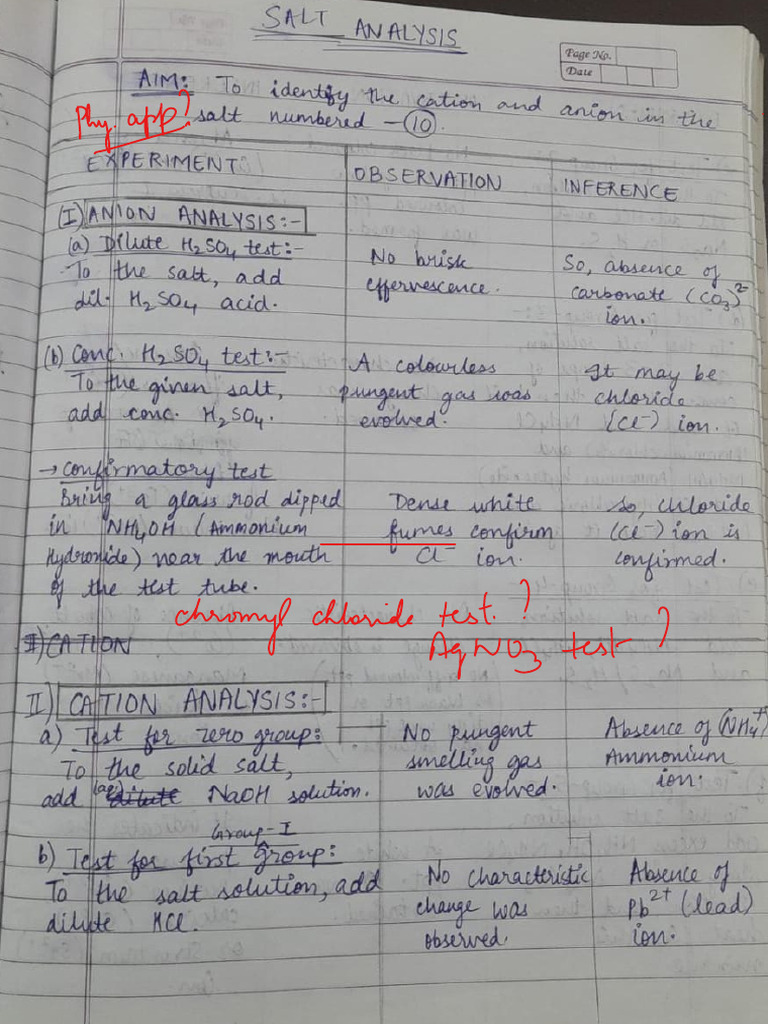 SALT ANALYSIS
Page No.
Date
AIM: To identify the cation and anion in the
Phy. app? salt numbered - 10.
EXPERIMENT OBSERVATION INFERENCE
(I) ANION ANALYSIS:-
(a) Dilute H2SO4 test:-
To the salt, add
dil. H2SO4 acid.
No brisk
effervescence.
So, absence of
carbonate (CO3)2-
ion.
(b) Conc. H2SO4 test:-
To the given salt,
add conc. H2SO4.
A colourless
pungent gas was
evolved.
It may be
chloride
(Cl-) ion.
→ Confirmatory test
Bring a glass rod dipped
in NH4OH (Ammonium
Hydroxide) near the mouth
of the test tube.
Dense white
fumes confirm
Cl- ion.
So, chloride
(Cl-) ion is
confirmed.
chromyl chloride test. ?
AgNO3 test ?
II) CATION
II) CATION ANALYSIS:-
a) Test for zero group:
To the solid salt,
add (aq) dilute NaOH solution.
No pungent
smelling gas
was evolved.
Absence of (NH4+)
Ammonium
ion.
Group-I
b) Test for first Group:
To the salt solution, add
dilute HCl.
No characteristic
change was
observed.
Absence of
Pb2+ (lead)
ion.